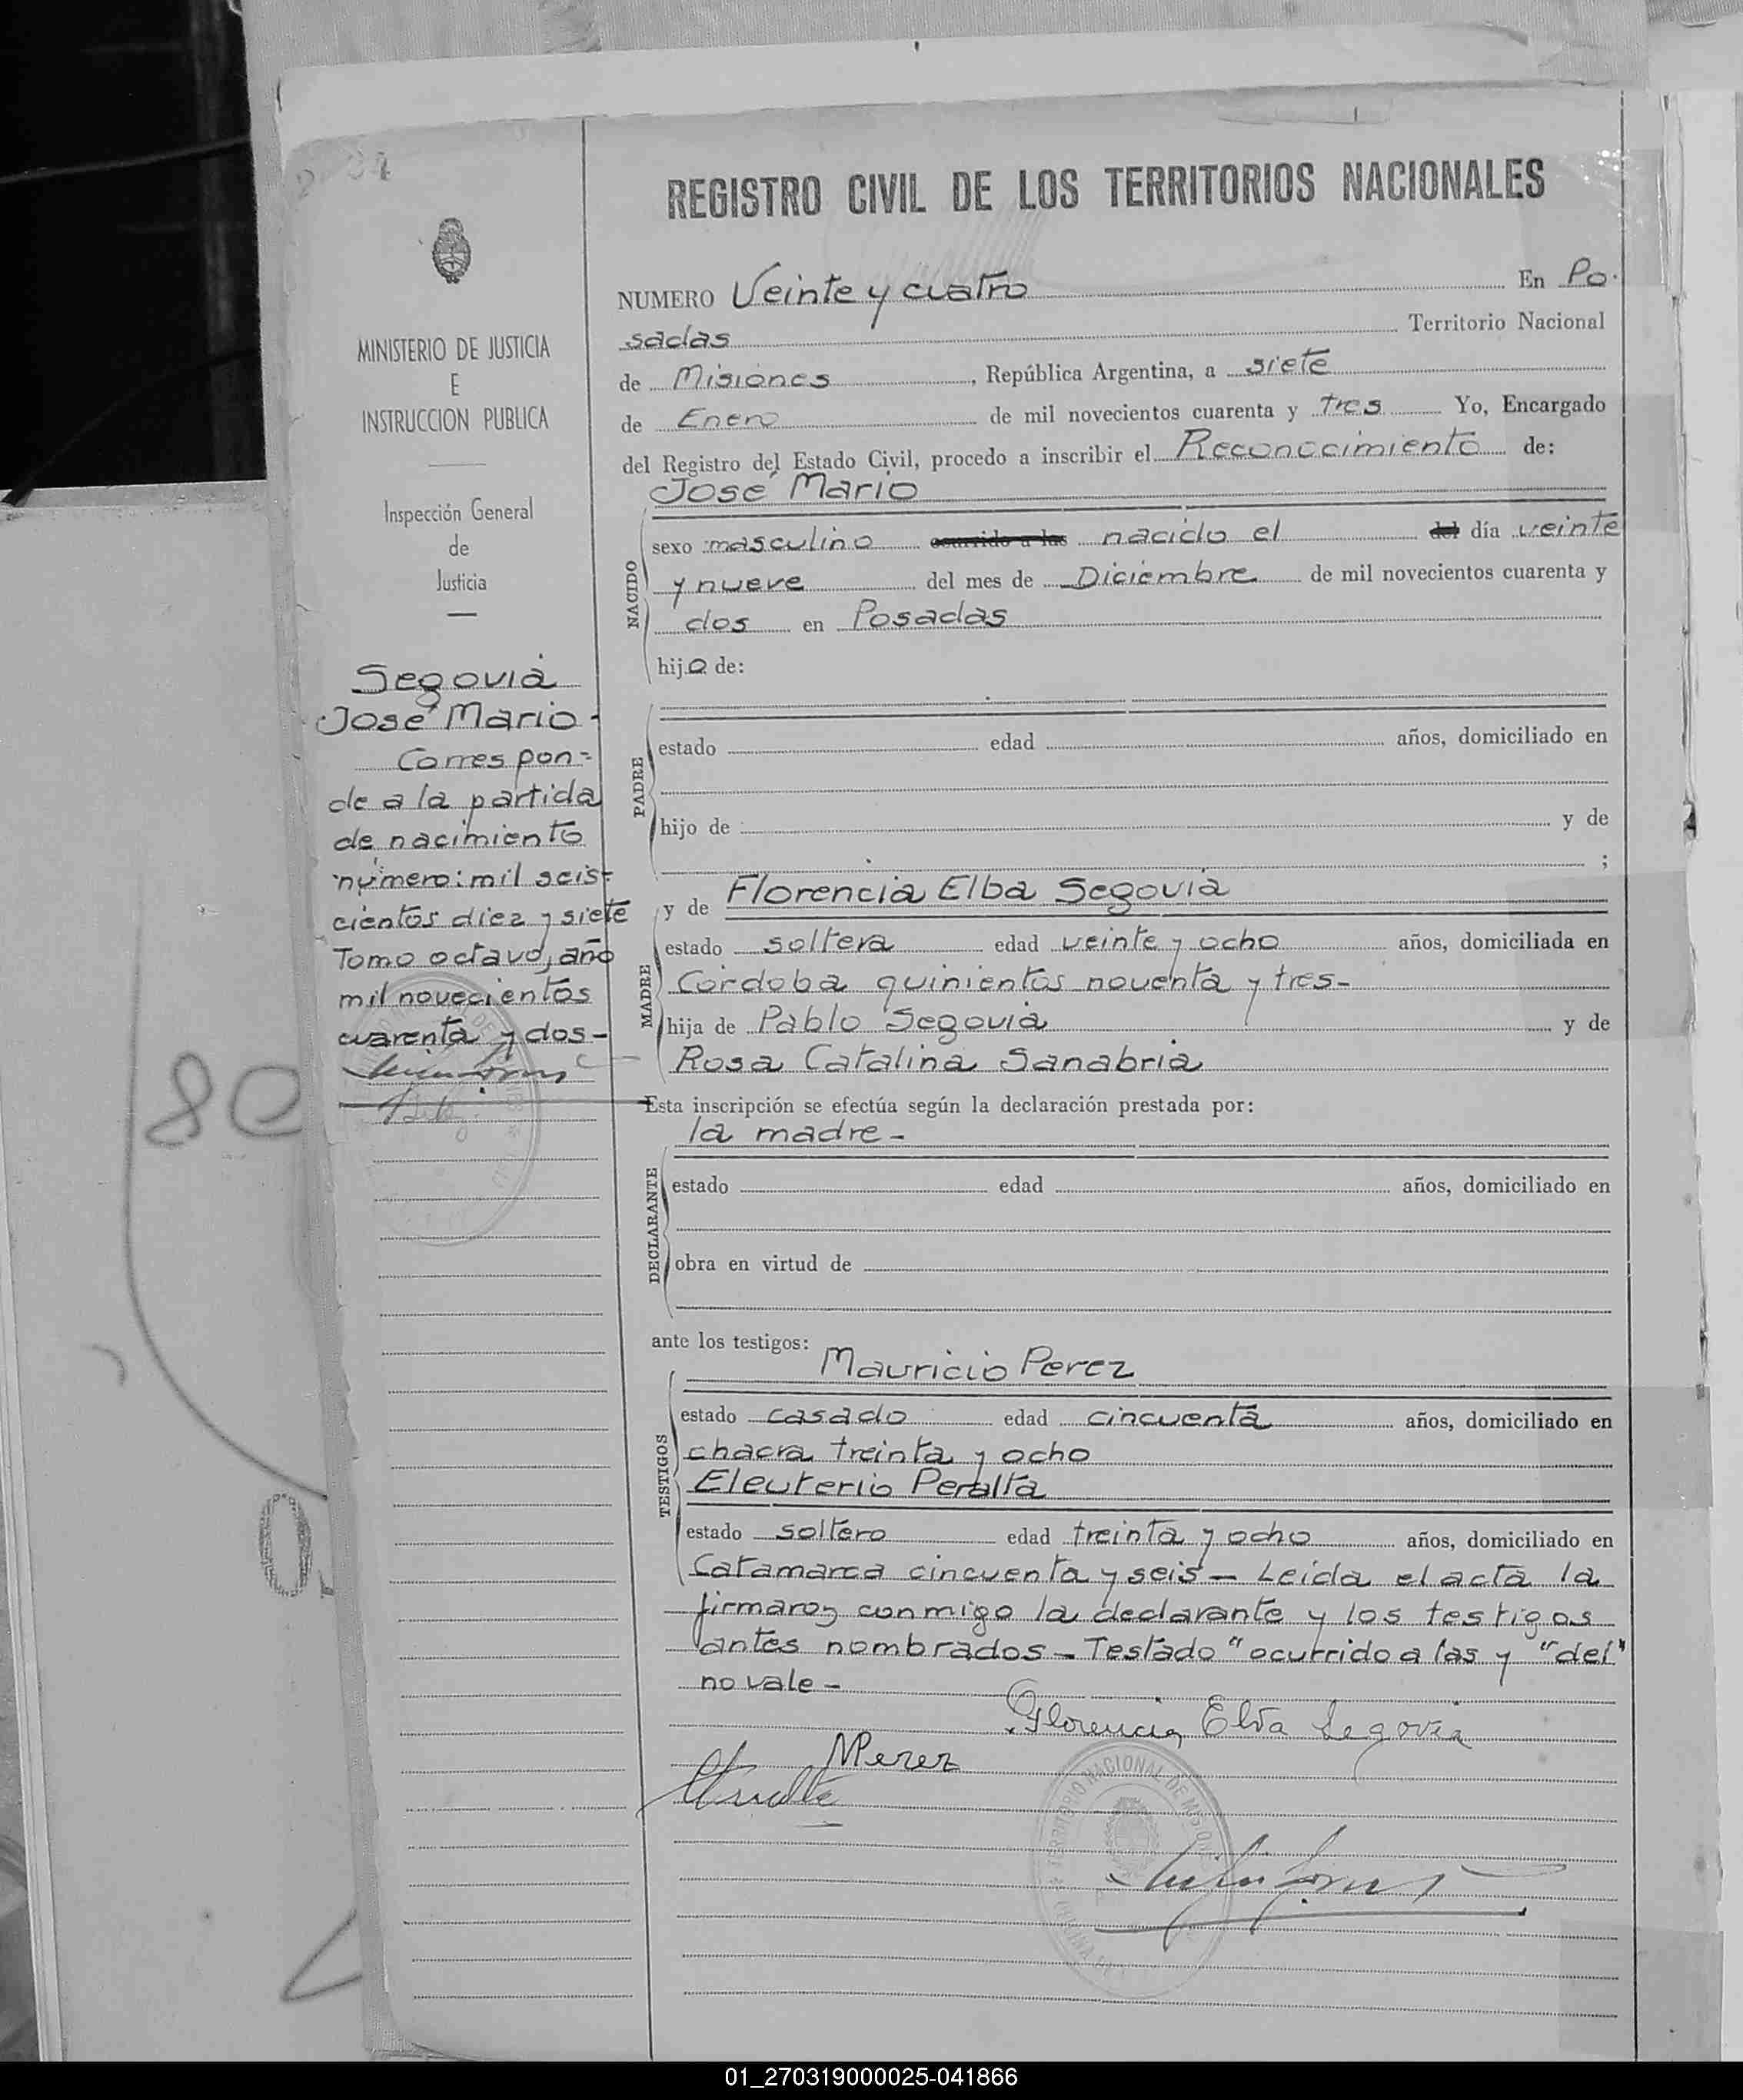 REGISTRO CIVIL DE LOS TERRITORIOS NACIONALES
MINISTERIO DE JUSTICIA
E
INSTRUCCION PUBLICA
Inspección General
de
Justicia
Segovia
José Mario-
Correspon-
de a la partida
de nacimiento
número: mil seis-
cientos diez y siete
Tomo octavo, año
mil novecientos
cuarenta y dos-
80
NUMERO Veinte y cuatro En Po-
sadas Territorio Nacional
de Misiones, República Argentina, a siete
de Enero de mil novecientos cuarenta y tres Yo, Encargado
del Registro del Estado Civil, procedo a inscribir el Reconocimiento de:
José Mario
NACIDO
sexo masculino ocurrido a las nacido el del día veinte
y nueve del mes de Diciembre de mil novecientos cuarenta y
dos en Posadas
hijo de:
PADRE
estado edad años, domiciliado en
hijo de y de
;
y de Florencia Elba Segovia
MADRE
estado soltera edad veinte y ocho años, domiciliada en
Córdoba quinientos noventa y tres-
hija de Pablo Segovia y de
Rosa Catalina Sanabria
Esta inscripción se efectúa según la declaración prestada por:
la madre-
DECLARANTE
estado edad años, domiciliado en
obra en virtud de
ante los testigos:
Mauricio Perez
TESTIGOS
estado casado edad cincuenta años, domiciliado en
chacra treinta y ocho
Eleuterio Peralta
estado soltero edad treinta y ocho años, domiciliado en
Catamarca cincuenta y seis- Leida el acta la
firmaron conmigo la declarante y los testigos
antes nombrados- Testado "ocurrido a las y "del"
no vale-
Florencia Elva Segovia
MPerez
TERRITORIO NACIONAL DE MISIONES
01_270319000025-041866